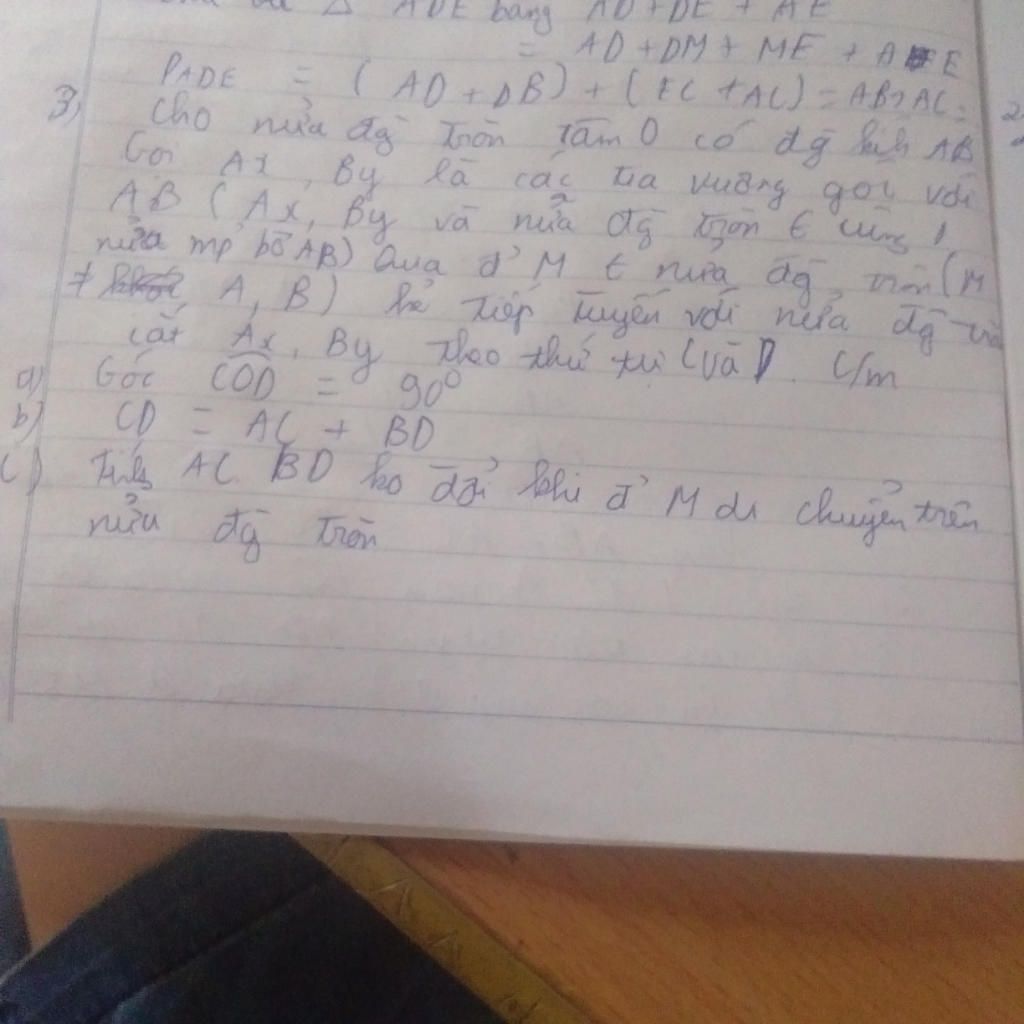 Δ ADE bằng AD + DE + AE
= AD + DM + ME + AE
PADE = (AD + DB) + (EC + AC) = AB + AC =
3) Cho nửa đg tròn tâm O có đg kính AB
Gọi Ax, By là các tia vuông góc với
AB (Ax, By và nửa đg tròn € cùng 1
nửa mp bờ AB) Qua đ' M € nửa đg tròn (M
≠ A, B) kẻ tiếp tuyến với nửa đg trò
cắt Ax, By theo thứ tự C và D. C/m
a) Góc COD = 90°
b) CD = AC + BD
c) Tích AC. BD ko đổi khi đ' M di chuyển trên
nửa đg tròn